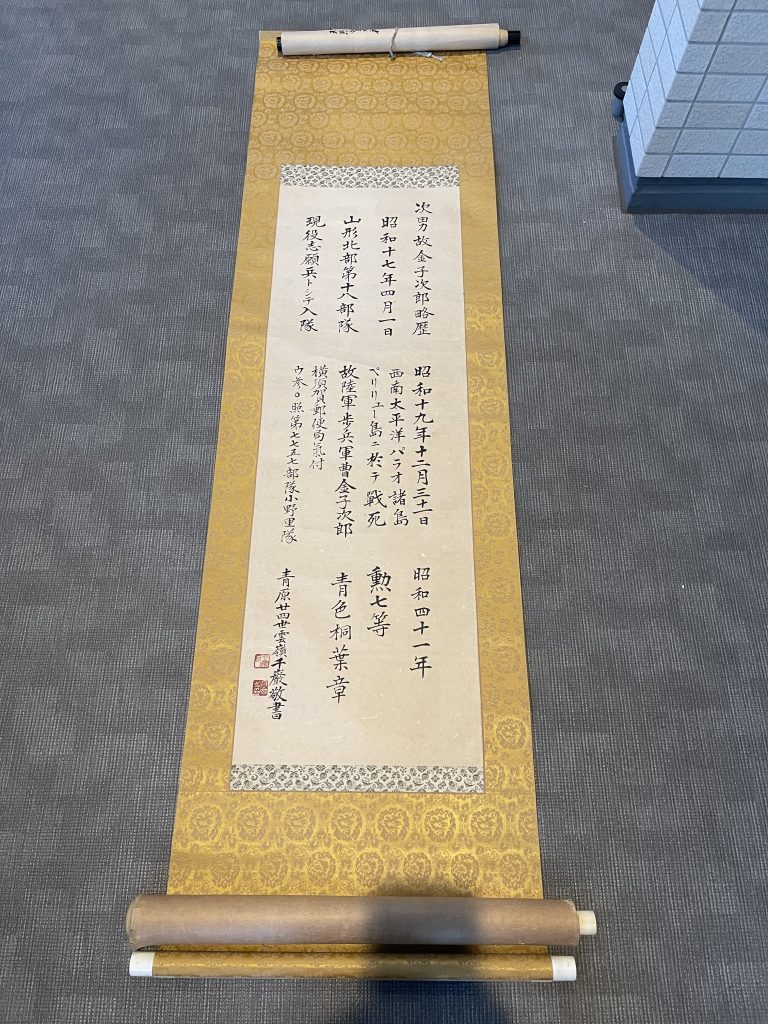 次男故金子次郎略歴
昭和十七年四月一日
山形北部第十八部隊
現役志願兵トシテ入隊
昭和十九年十二月三十一日
西南太平洋パラオ諸島
ペリリュー島ニ於テ戰死
故陸軍歩兵軍曹金子次郎
横須賀郵便局氣付
ウ参〇照第七七五七部隊小野里隊
昭和四十一年
勲七等
青色桐葉章
青原廿四世雲嶺千巌敬書